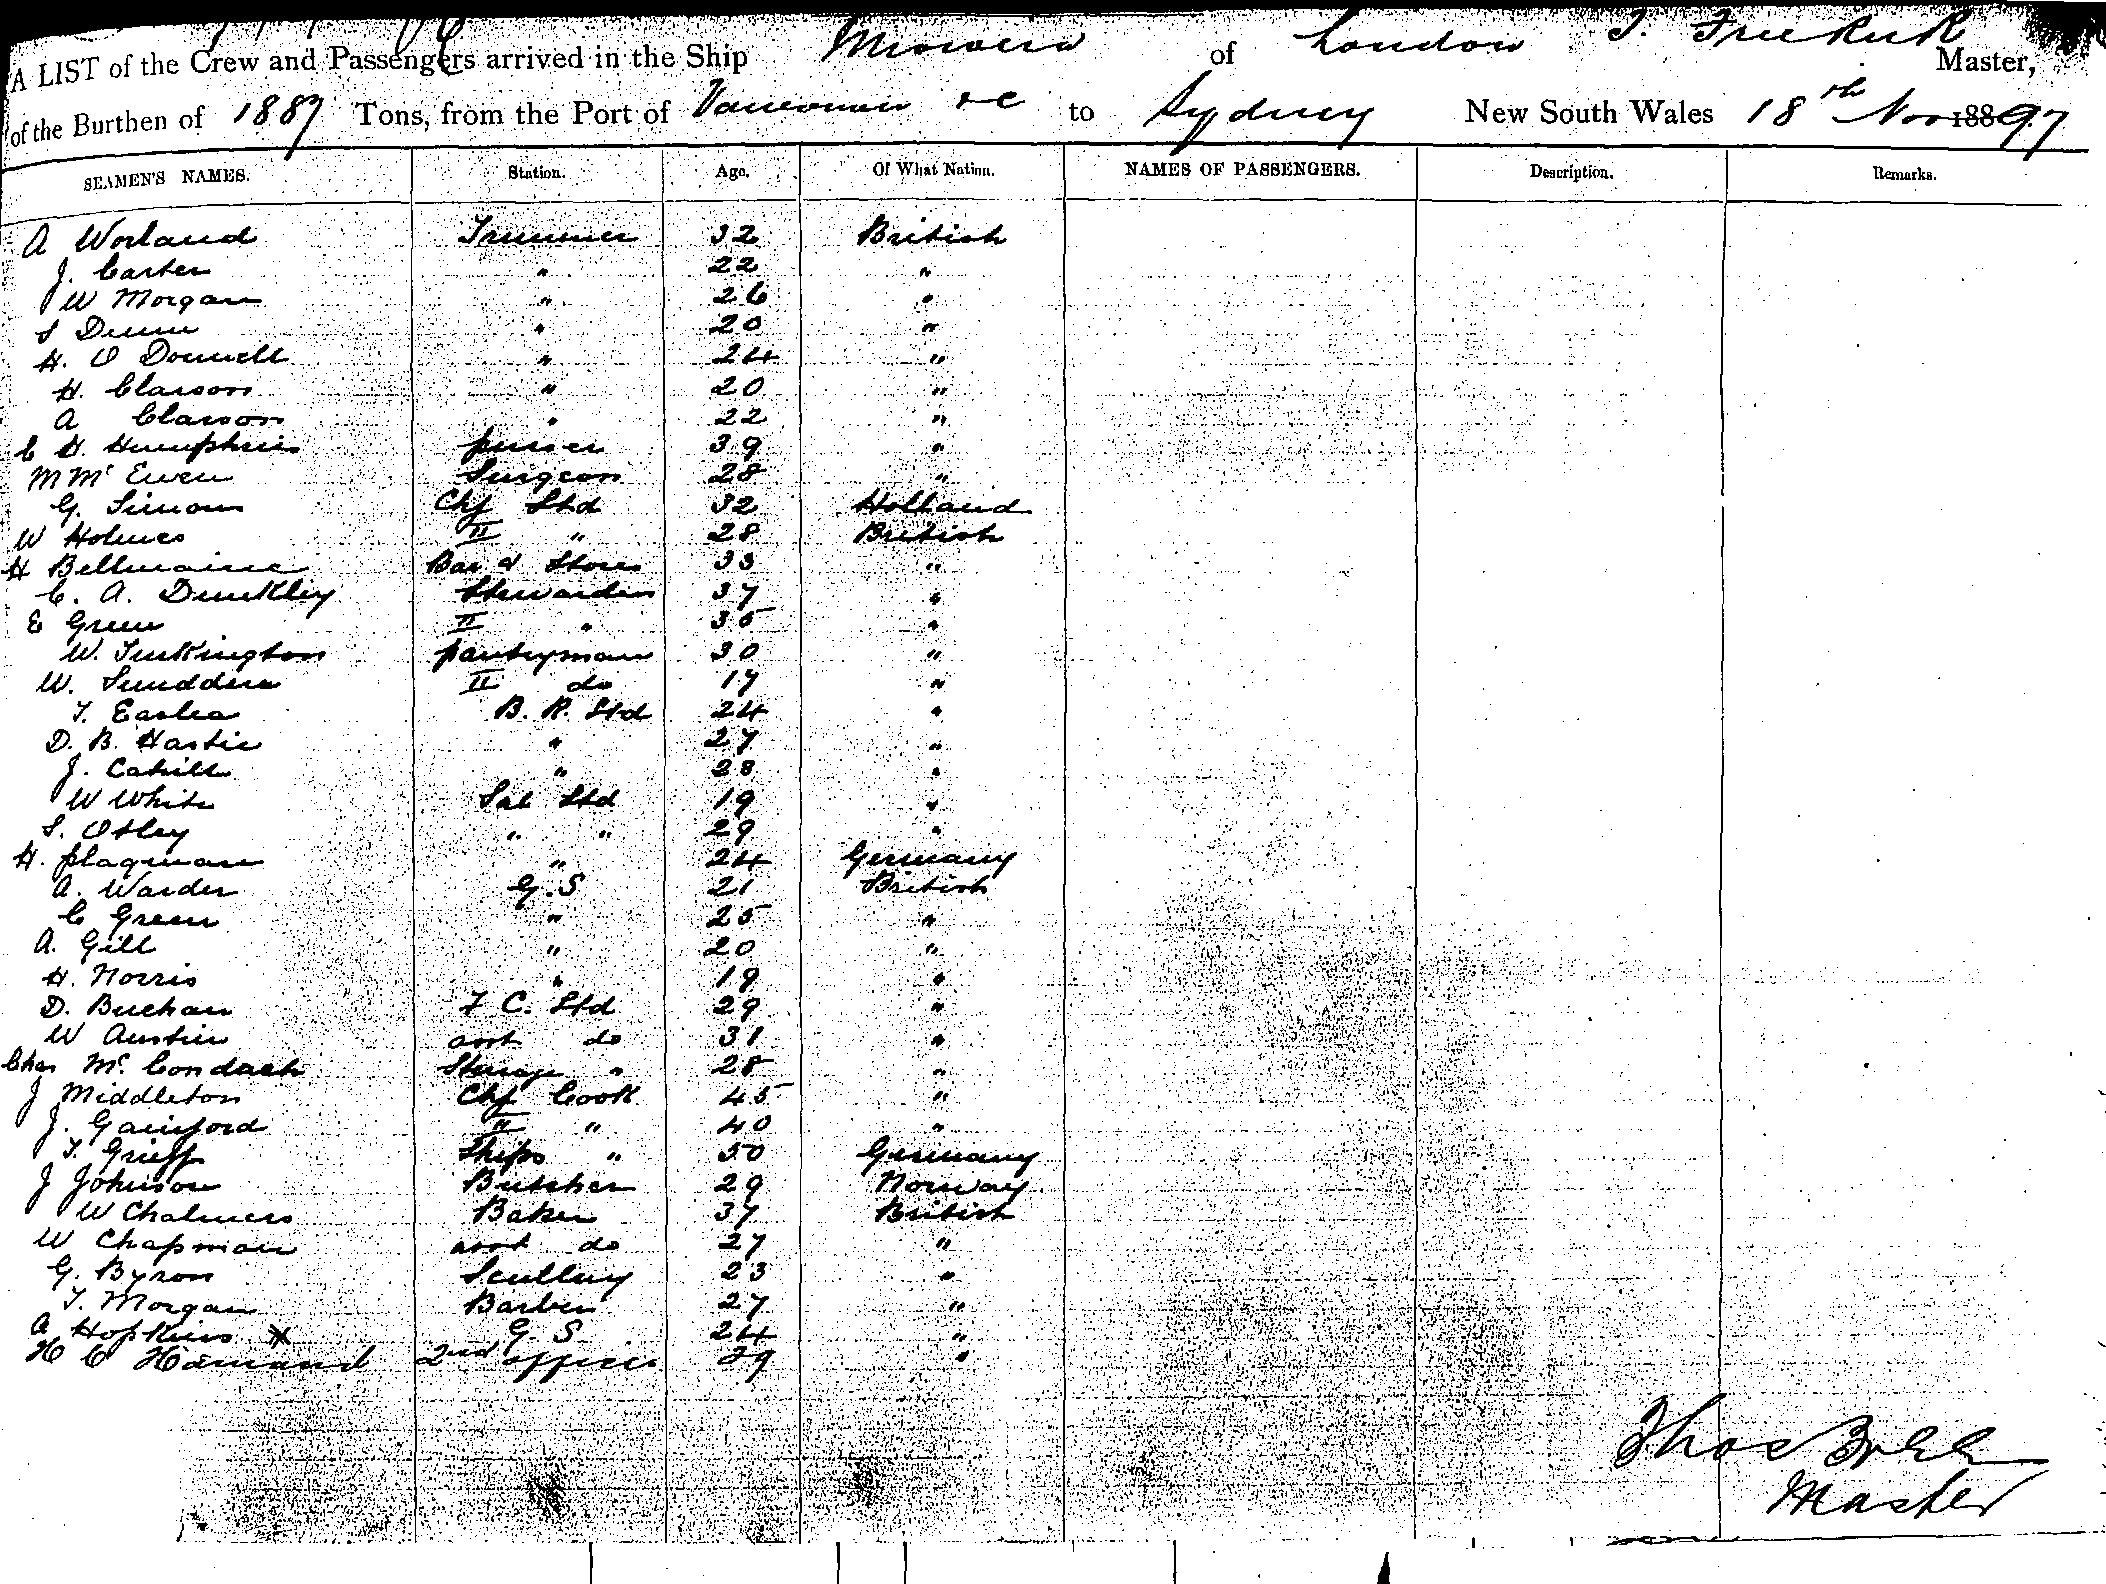 A LIST of the Crew and Passengers arrived in the Ship Miowera of London T. Frederick Master,
of the Burthen of 1889 Tons, from the Port of Vancouver &c to Sydney New South Wales 18th Nov 188 97
SEAMEN'S NAMES. Station. Age. Of What Nation. NAMES OF PASSENGERS. Description. Remarks.
A Worland Trimmer 32 British
J. Carter " 22 "
W Morgan " 26 "
S Dunn " 20 "
H. O Donnell " 24 "
H. Clarson " 20 "
A Clarson " 22 "
C H. Humphries purser 39 "
M Mc Ewen Surgeon 28 "
G. Simons Chf Std 32 Holland
W Holmes II " 28 British
H Bellmaine Bar & Stores 33 "
C. A. Dunkley Stewardess 37 "
E Green II " 35 "
W. Turkington pantryman 30 "
W. II do 17 "
T. Eastea B. R. Std 24 "
D. B. Hastie " 27 "
J. Cahill " 28 "
W White Sal Std 19 "
S. Otley " " 29 "
H. plagman " 24 Germany
A. Warder G. S 21 British
C Green " 25 "
A. Gill " 20 "
H. Norris " 19 "
D. Buchan F C. Std 29 "
W Austin asst do 31 "
Chas Mc Condach Sterage " 28 "
J Middleton Chf Cook 45 "
J. Gainford II " 40 "
T. Grieff Ships " 50 Germany
J Johnson Butcher 29 Norway
W Chalmers Baker 37 British
W Chapman asst do 27 "
G. Byron Scullery 23 "
T. Morgan Barber 27 "
A Hopkins * G. S 24 "
H C Hamand 2nd officer 29 "
Thos
Master